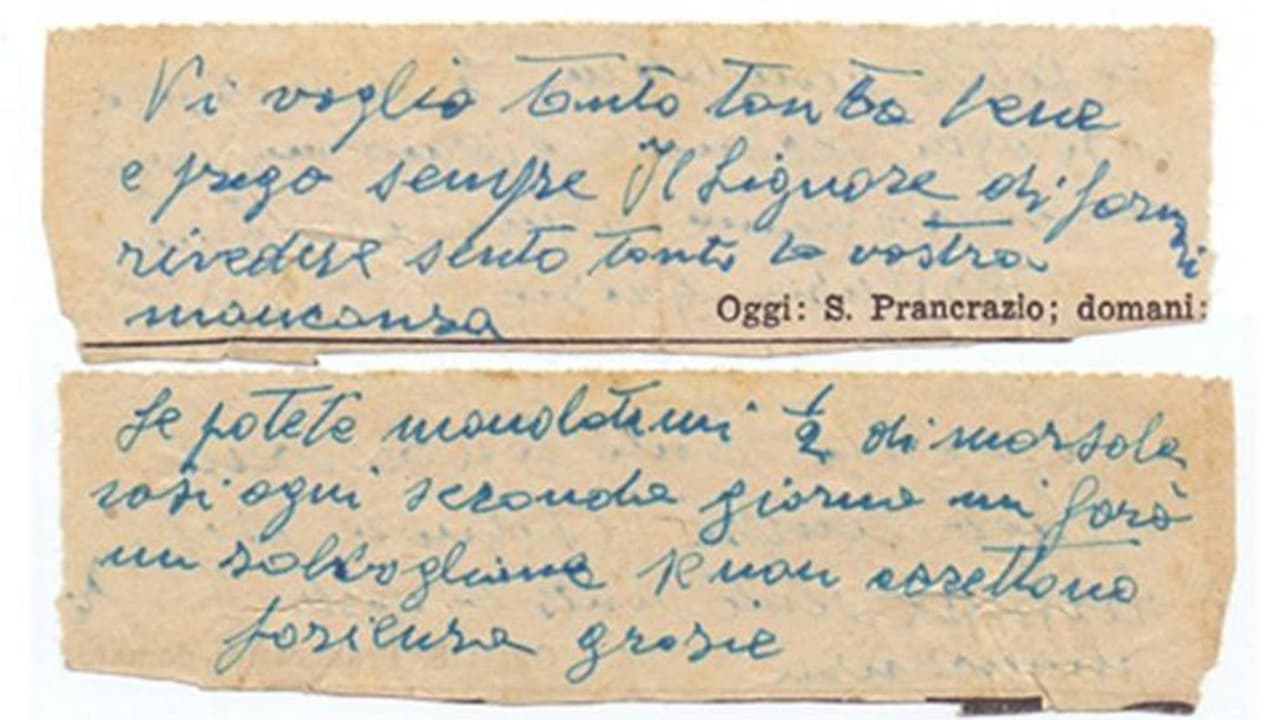 Vi voglio tanto tanto bene
e prego sempre Il Signore di farvi
rivedere sento tanto la vostra
mancansa
Oggi: S. Prancrazio; domani:
Se potete mandatemi ½ di marsala
così ogni seconda giorno mi farò
un zabvogliane se non accettano
pasiensa grasie